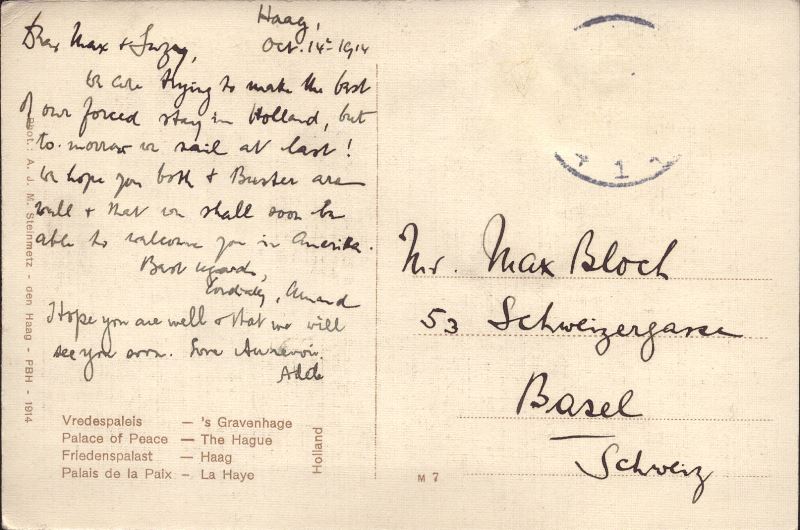 Haag,
Oct. 14 - 1914
Dear Max &
We are trying to make the best
of our forced stay in Holland, but
to-morrow we sail at last!
We hope you both & Buster are
well & that we shall soon be
able to welcome you in Amerika.
Best regards,
Cordially, Armand
Hope you are well & that we will
see you soon. Love Aurevoir.
Adele
Mr. Max Bloch
53 Schweizergasse
Basel
Schweiz
Phot.: A. J. M. Steinmetz - den Haag - PBH - 1914
Vredespaleis — 's Gravenhage
Palace of Peace — The Hague
Friedenspalast — Haag
Palais de la Paix — La Haye
Holland
M 7
1